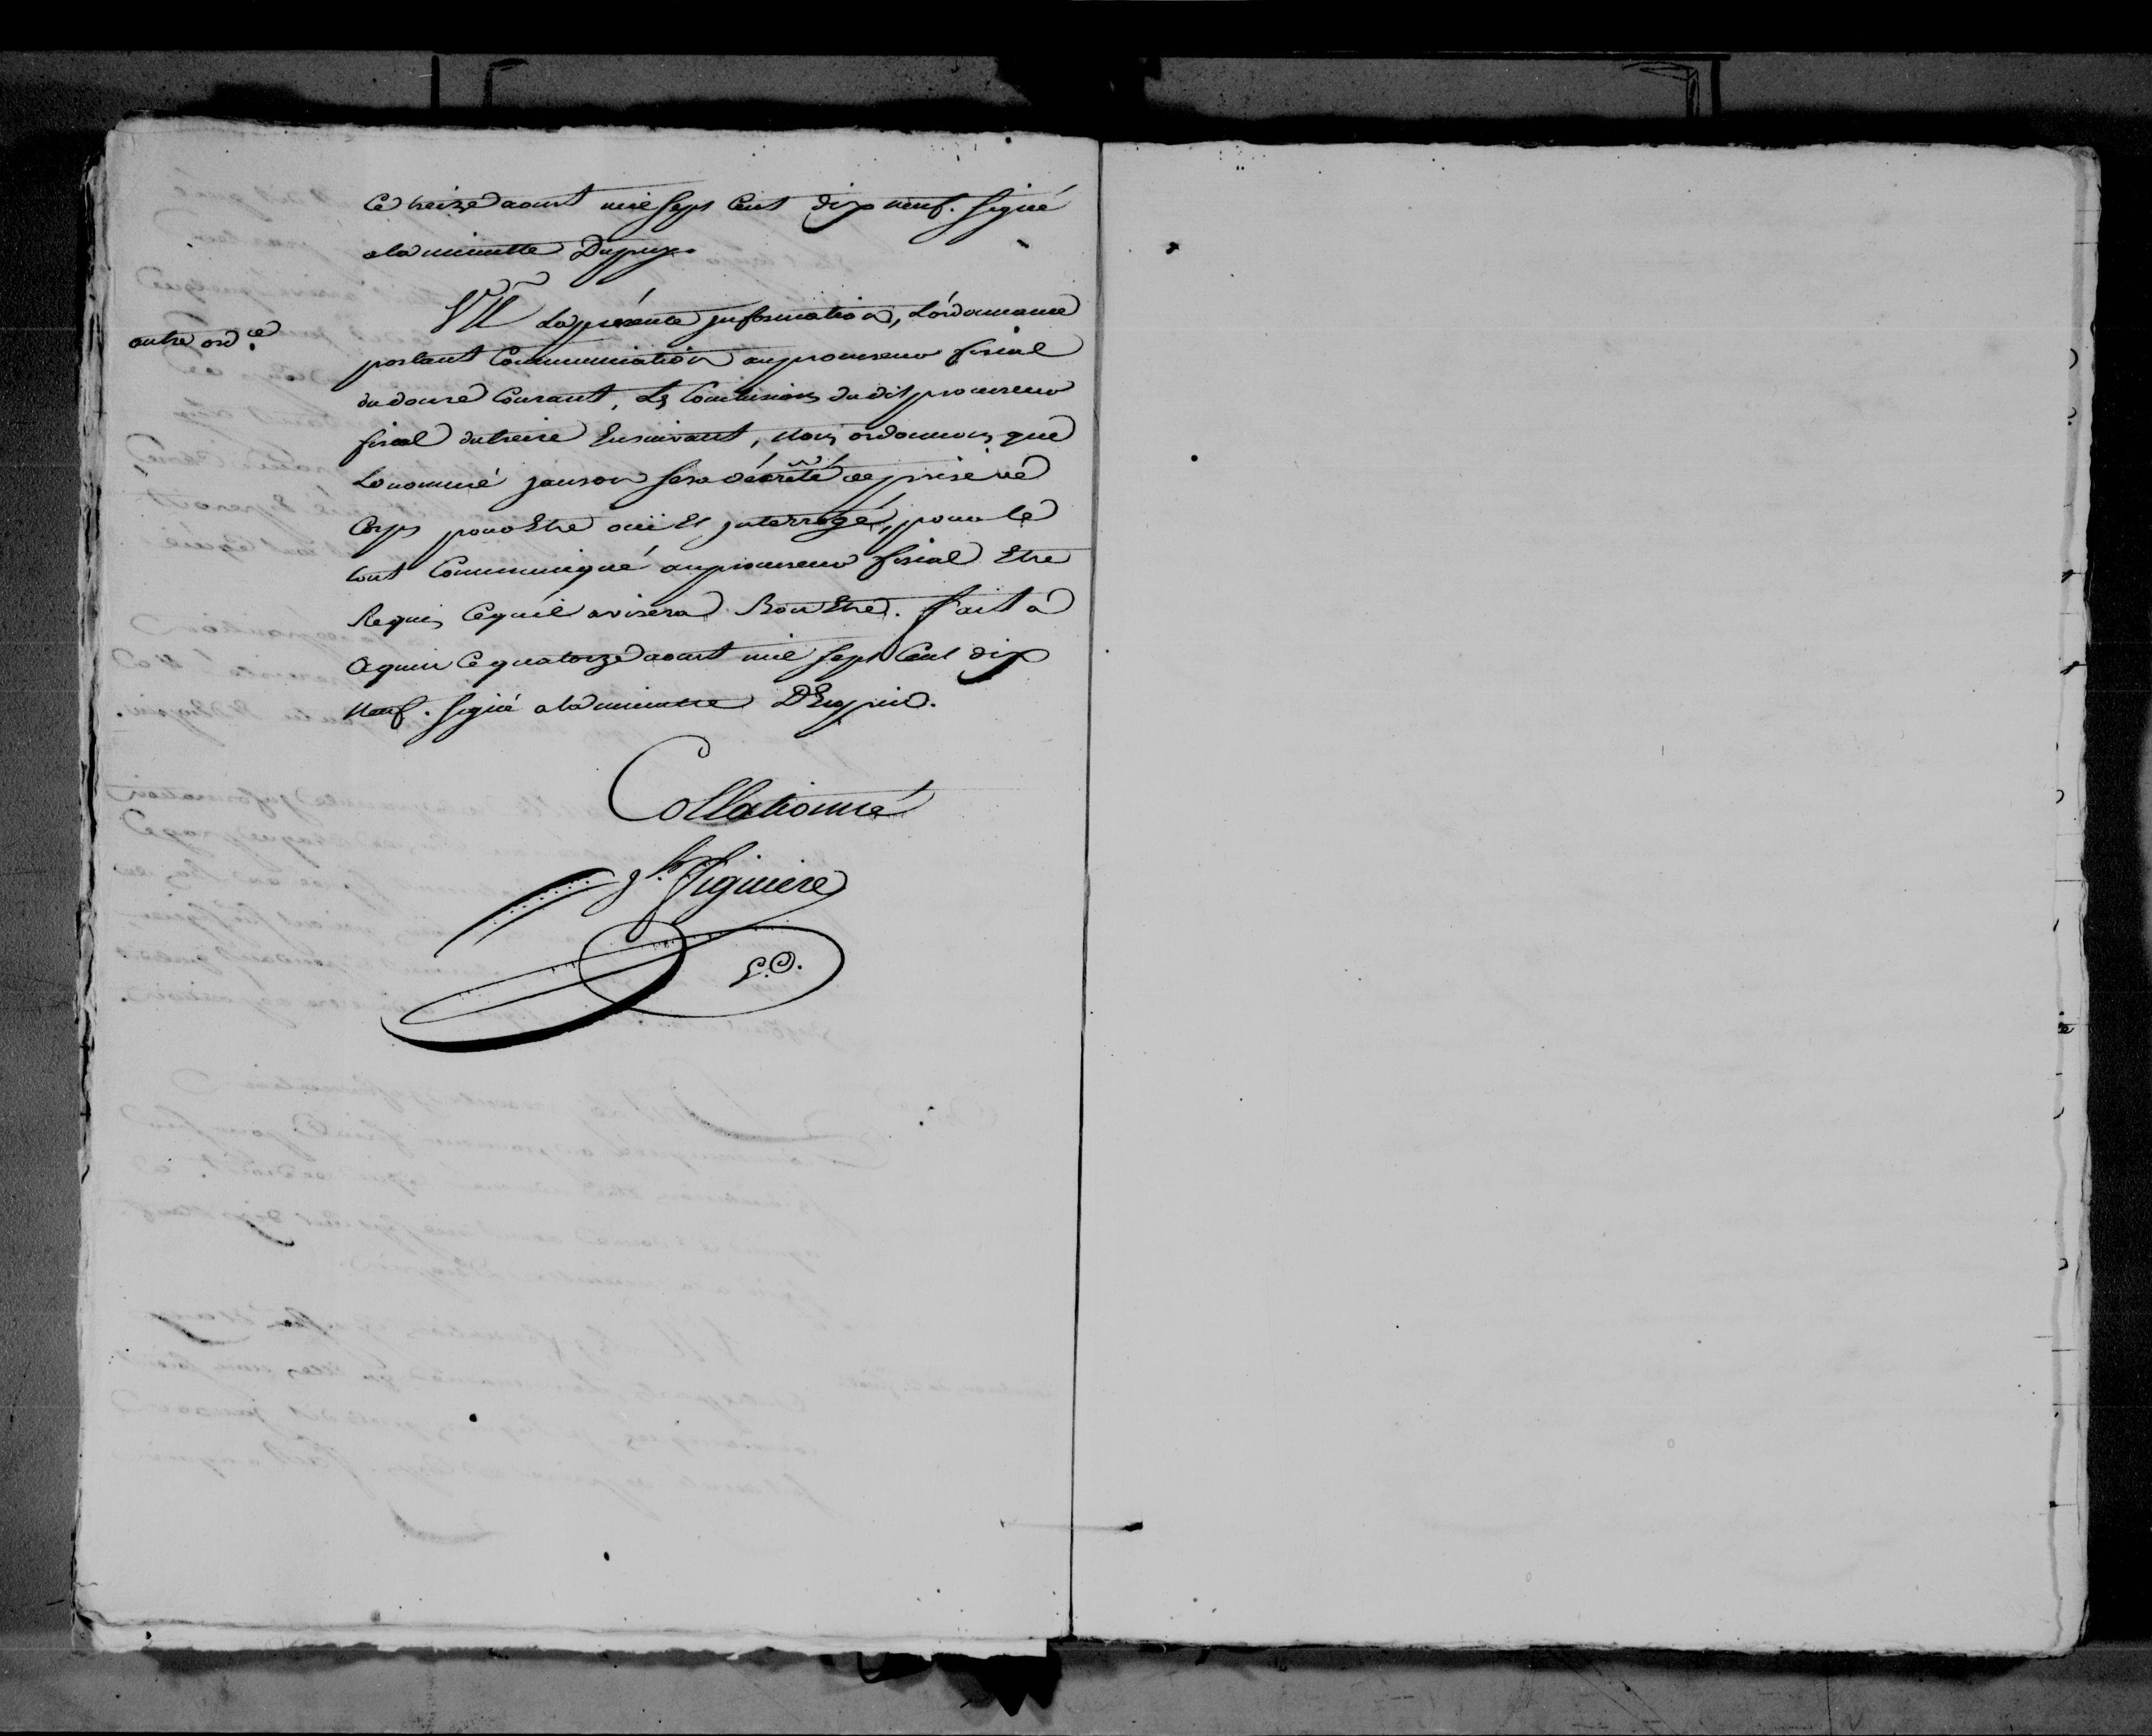 ce treize aoust mil sept cent dix neuf. signé
a la minutte Dupuy.
autre ord.ce
VU la présente jnformation, L'ordonnance
portant Communication au procureur fiscal
du douze Courant, Les Conclusions du dit procureur
fiscal du treize Ensuivant, Nous ordonnons que
Le nommé janson sera décrété de prise de
Corps pour Etre ouï et jnterrogé, pour le
tout Communiqué au procureur fiscal Etre
Requis Ce qu'il avisera Bon Etre. fait à
Ce quatorze aoust mil sept Cent dix
Neuf. signé a la minutte
Collationné
Figuiere